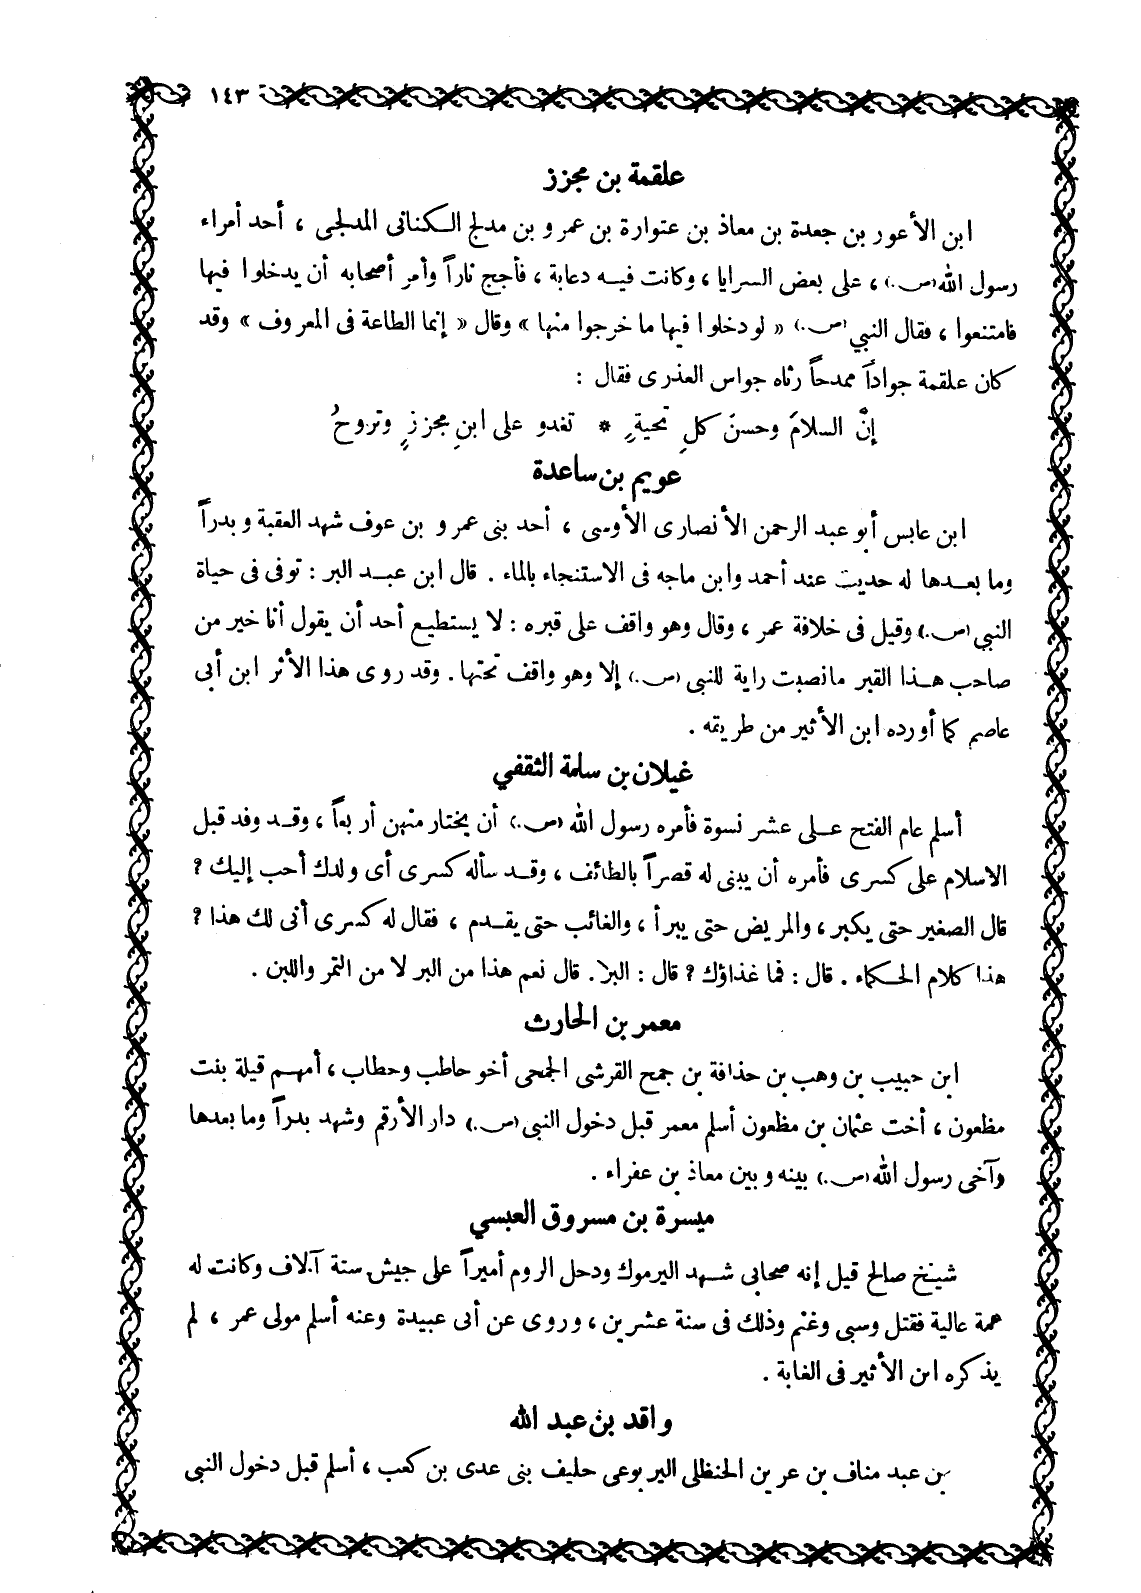 ١٤٣
علقمة بن مجزز
ابن الأعور بن جعدة بن معاذ بن عتوارة بن عمرو بن مدلج الكنانى المدلجى ، أحد أمراء
رسول الله (ص.) ، على بعض السرايا ، وكانت فيه دعابة ، فأجج ناراً وأمر أصحابه أن يدخلوا فيها
فامتنعوا ، فقال النبي (ص.) « لو دخلوا فيها ما خرجوا منها » وقال « إنما الطاعة فى المعروف » وقد
كان علقمة جواداً ممدحاً رثاه جواس العذرى فقال :
إنَّ السلامَ وحسنَ كلِ تحيةٍ * تغدو على ابنِ مجززٍ وتروحُ
عويم بن ساعدة
ابن عابس أبو عبد الرحمن الأنصارى الأوسى ، أحد بنى عمرو بن عوف شهد العقبة وبدراً
وما بعدها له حديث عند أحمد وابن ماجه فى الاستنجاء بالماء . قال ابن عبد البر : توفى فى حياة
النبي (ص.) وقيل فى خلافة عمر ، وقال وهو واقف على قبره : لا يستطيع أحد أن يقول أنا خير من
صاحب هذا القبر ما نصبت راية للنبى (ص.) إلا وهو واقف تحتها . وقد روى هذا الأثر ابن أبى
عاصم كما أورده ابن الأثير من طريقه .
غيلان بن سلمة الثقفي
أسلم عام الفتح على عشر نسوة فأمره رسول الله (ص.) أن يختار منهن أربعاً ، وقد وفد قبل
الاسلام على كسرى فأمره أن يبنى له قصراً بالطائف ، وقد سأله كسرى أى ولدك أحب إليك ؟
قال الصغير حتى يكبر ، والمريض حتى يبرأ ، والغائب حتى يقدم ، فقال له كسرى أنى لك هذا ؟
هذا كلام الحكماء . قال : فما غذاؤك ؟ قال : البر . قال نعم هذا من البر لا من التمر واللبن .
معمر بن الحارث
ابن حبيب بن وهب بن حذافة بن جمح القرشى الجمحى أخو حاطب وحطاب ، أمهم قيلة بنت
مظعون ، أخت عثمان بن مظعون أسلم معمر قبل دخول النبى (ص.) دار الأرقم وشهد بدراً وما بعدها
وآخى رسول الله (ص.) بينه وبين معاذ بن عفراء .
ميسرة بن مسروق العبسي
شيخ صالح قيل إنه صحابى شهد اليرموك ودخل الروم أميراً على جيش ستة آلاف وكانت له
همة عالية فقتل وسبى وغنم وذلك فى سنة عشرين ، وروى عن أبى عبيدة وعنه أسلم مولى عمر ، لم
يذكره ابن الأثير فى الغابة .
واقد بن عبد الله
بن عبد مناف بن عرين الحنظلى اليربوعى حليف بنى عدى بن كعب ، أسلم قبل دخول النبى